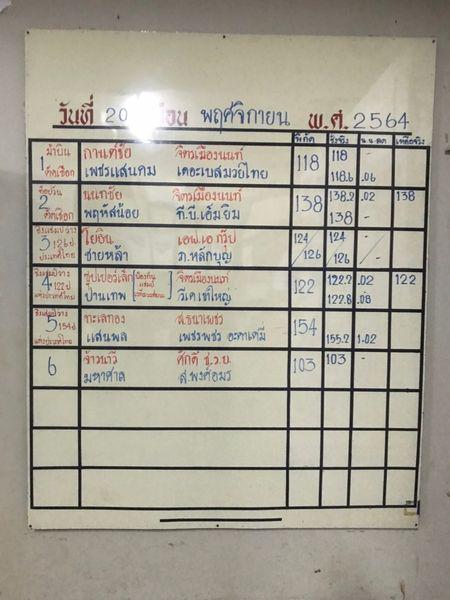 วันที่ 20 เดือน พฤศจิกายน พ.ศ. 2564
พิกัด ชั่งจริง น.น.ลด เหลือจริง
1 คัดเลือก กานต์ชัย จิตรเมืองนนท์ 118 118 -
เพชรแสนคม เดอะเบสมวยไทย 118.6 .06
2 คัดเลือก นนทชัย จิตรเมืองนนท์ 138 138.2 .02 138
พฤหัสน้อย ที.บี.เอ็มยิม 138 -
3 126 ป. ประเทศไทย โยธิน เอฟ.เอ กรุ๊ป 124/126 124 -
ชายหล้า ภ.หลักบุญ 126 -
4 122 ป. แห่งประเทศไทย ซุปเปอร์เล็ก จิตรเมืองนนท์ 122 122.2 .02 122
ปานเทพ วี.เค.เขาใหญ่ 122.8 .08
5 154 ป. แห่งประเทศไทย ทะเลทอง ส.ธนาเพชร 154
แสนพล เพชรพชร อะคาเดมี่ 155.2 1.02
6 จ้าวนาวี ศักดิ์ ช.ร.บ. 103 103 -
มหาศาล ส.พงศ์อมร